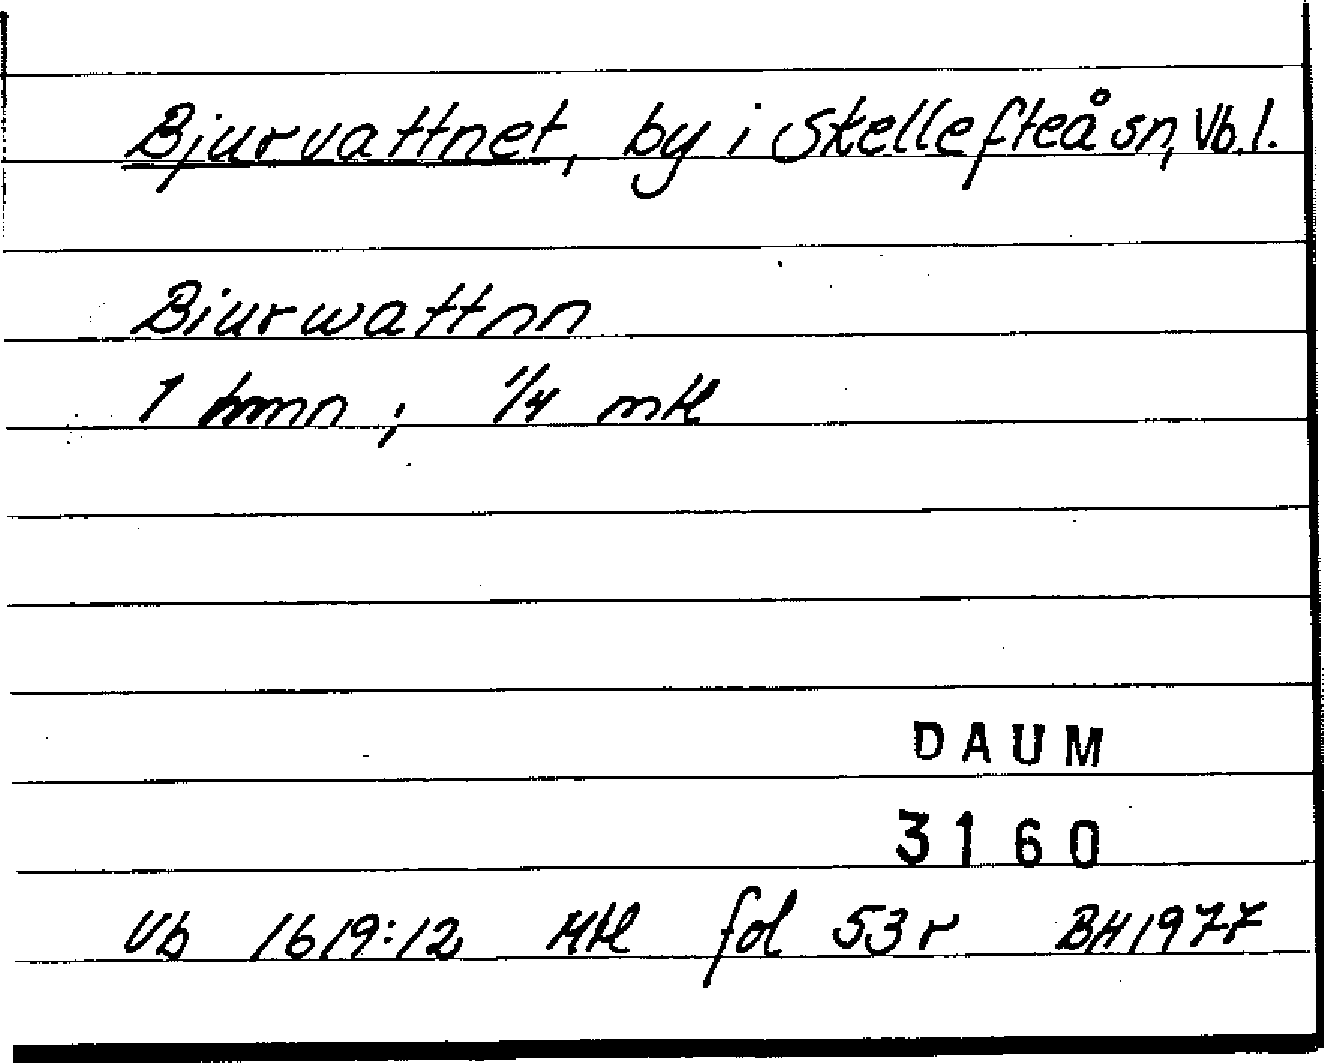 Bjurvattnet, by i Skellefteå sn, Vb. l.
Biurwattnn
1 hmn ; 1/4 mtl
DAUM
3160
Vb 1619:12 Mtl fol 53 r BH 1977